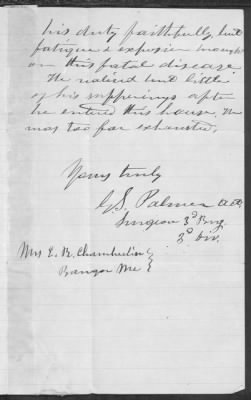 his duty faithfully, but
fatigue & exposure brought
on this fatal disease
He realized but little
of his sufferings after
he entered this house. He
was too far exhausted.
Yours truly
G. S. Palmer
Surgeon 3d Brig
2d Div.
Mrs E. B. Chamberlin
Bangor Me